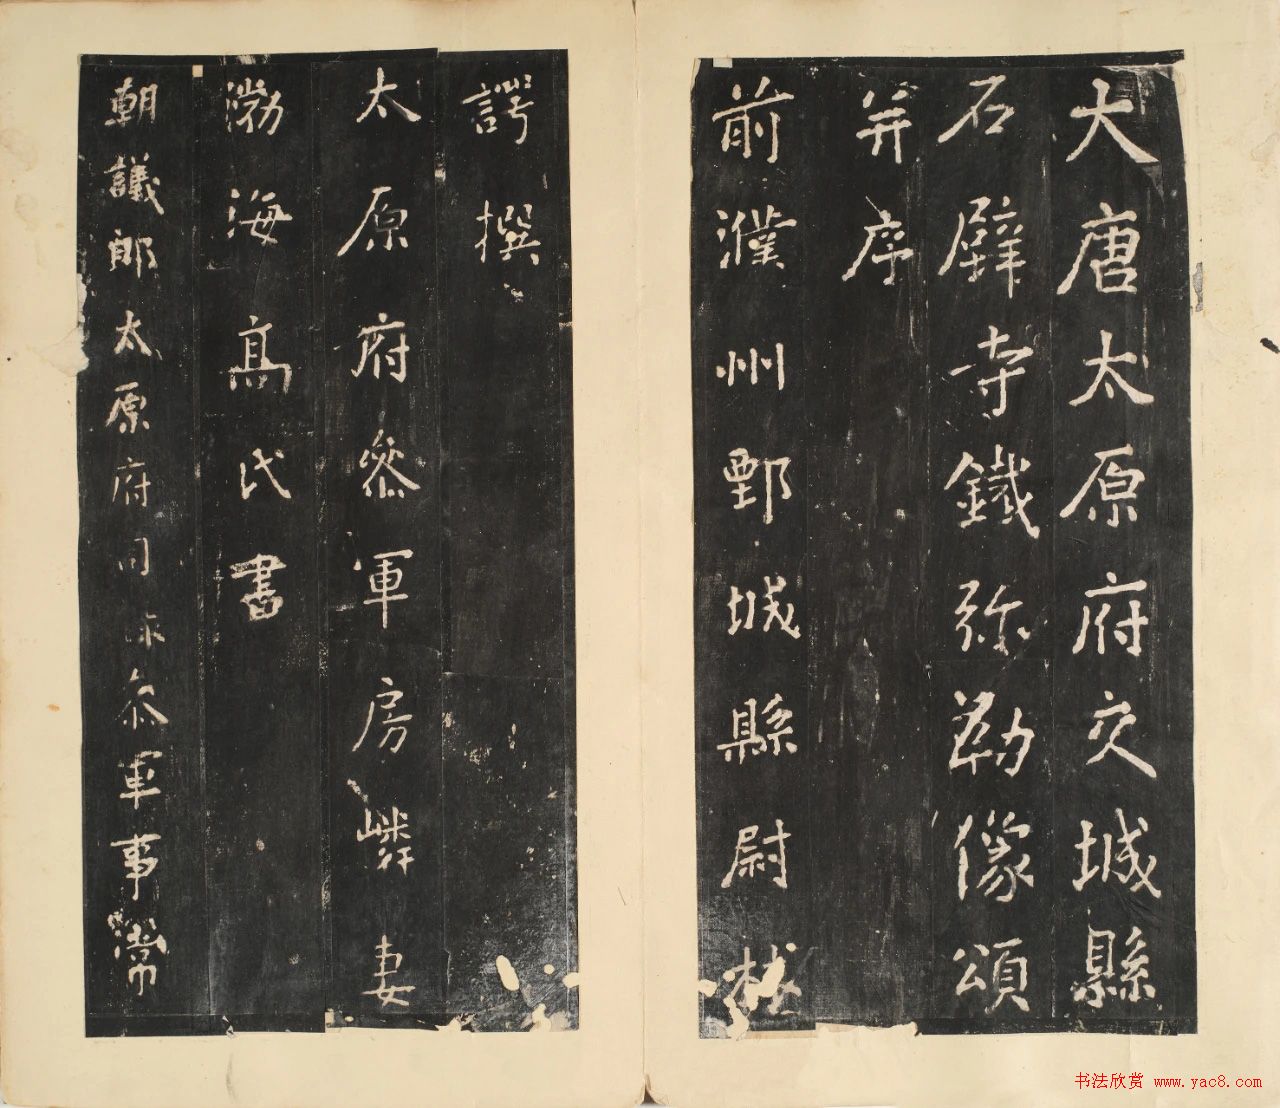 大唐太原府交城縣
石壁寺鐵弥勒像頌
并序
前濮州鄄城縣尉林
諤撰
太原府叅軍房嶙妻
渤海髙氏書
朝議郎太原府司
叅軍事常
书法欣赏 www.yac8.com